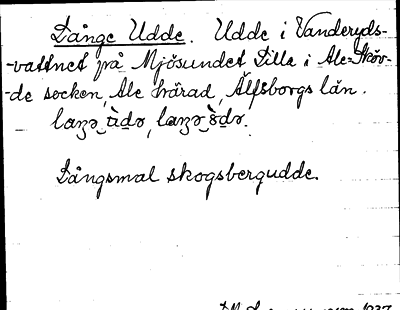 Långe Udde. Udde i Vanderyds-
-vattnet på Mjösundet Lilla i Ale-Sköv-
-de socken, Ale härad, Älfsborgs län.

Långsmal skogsbergudde.